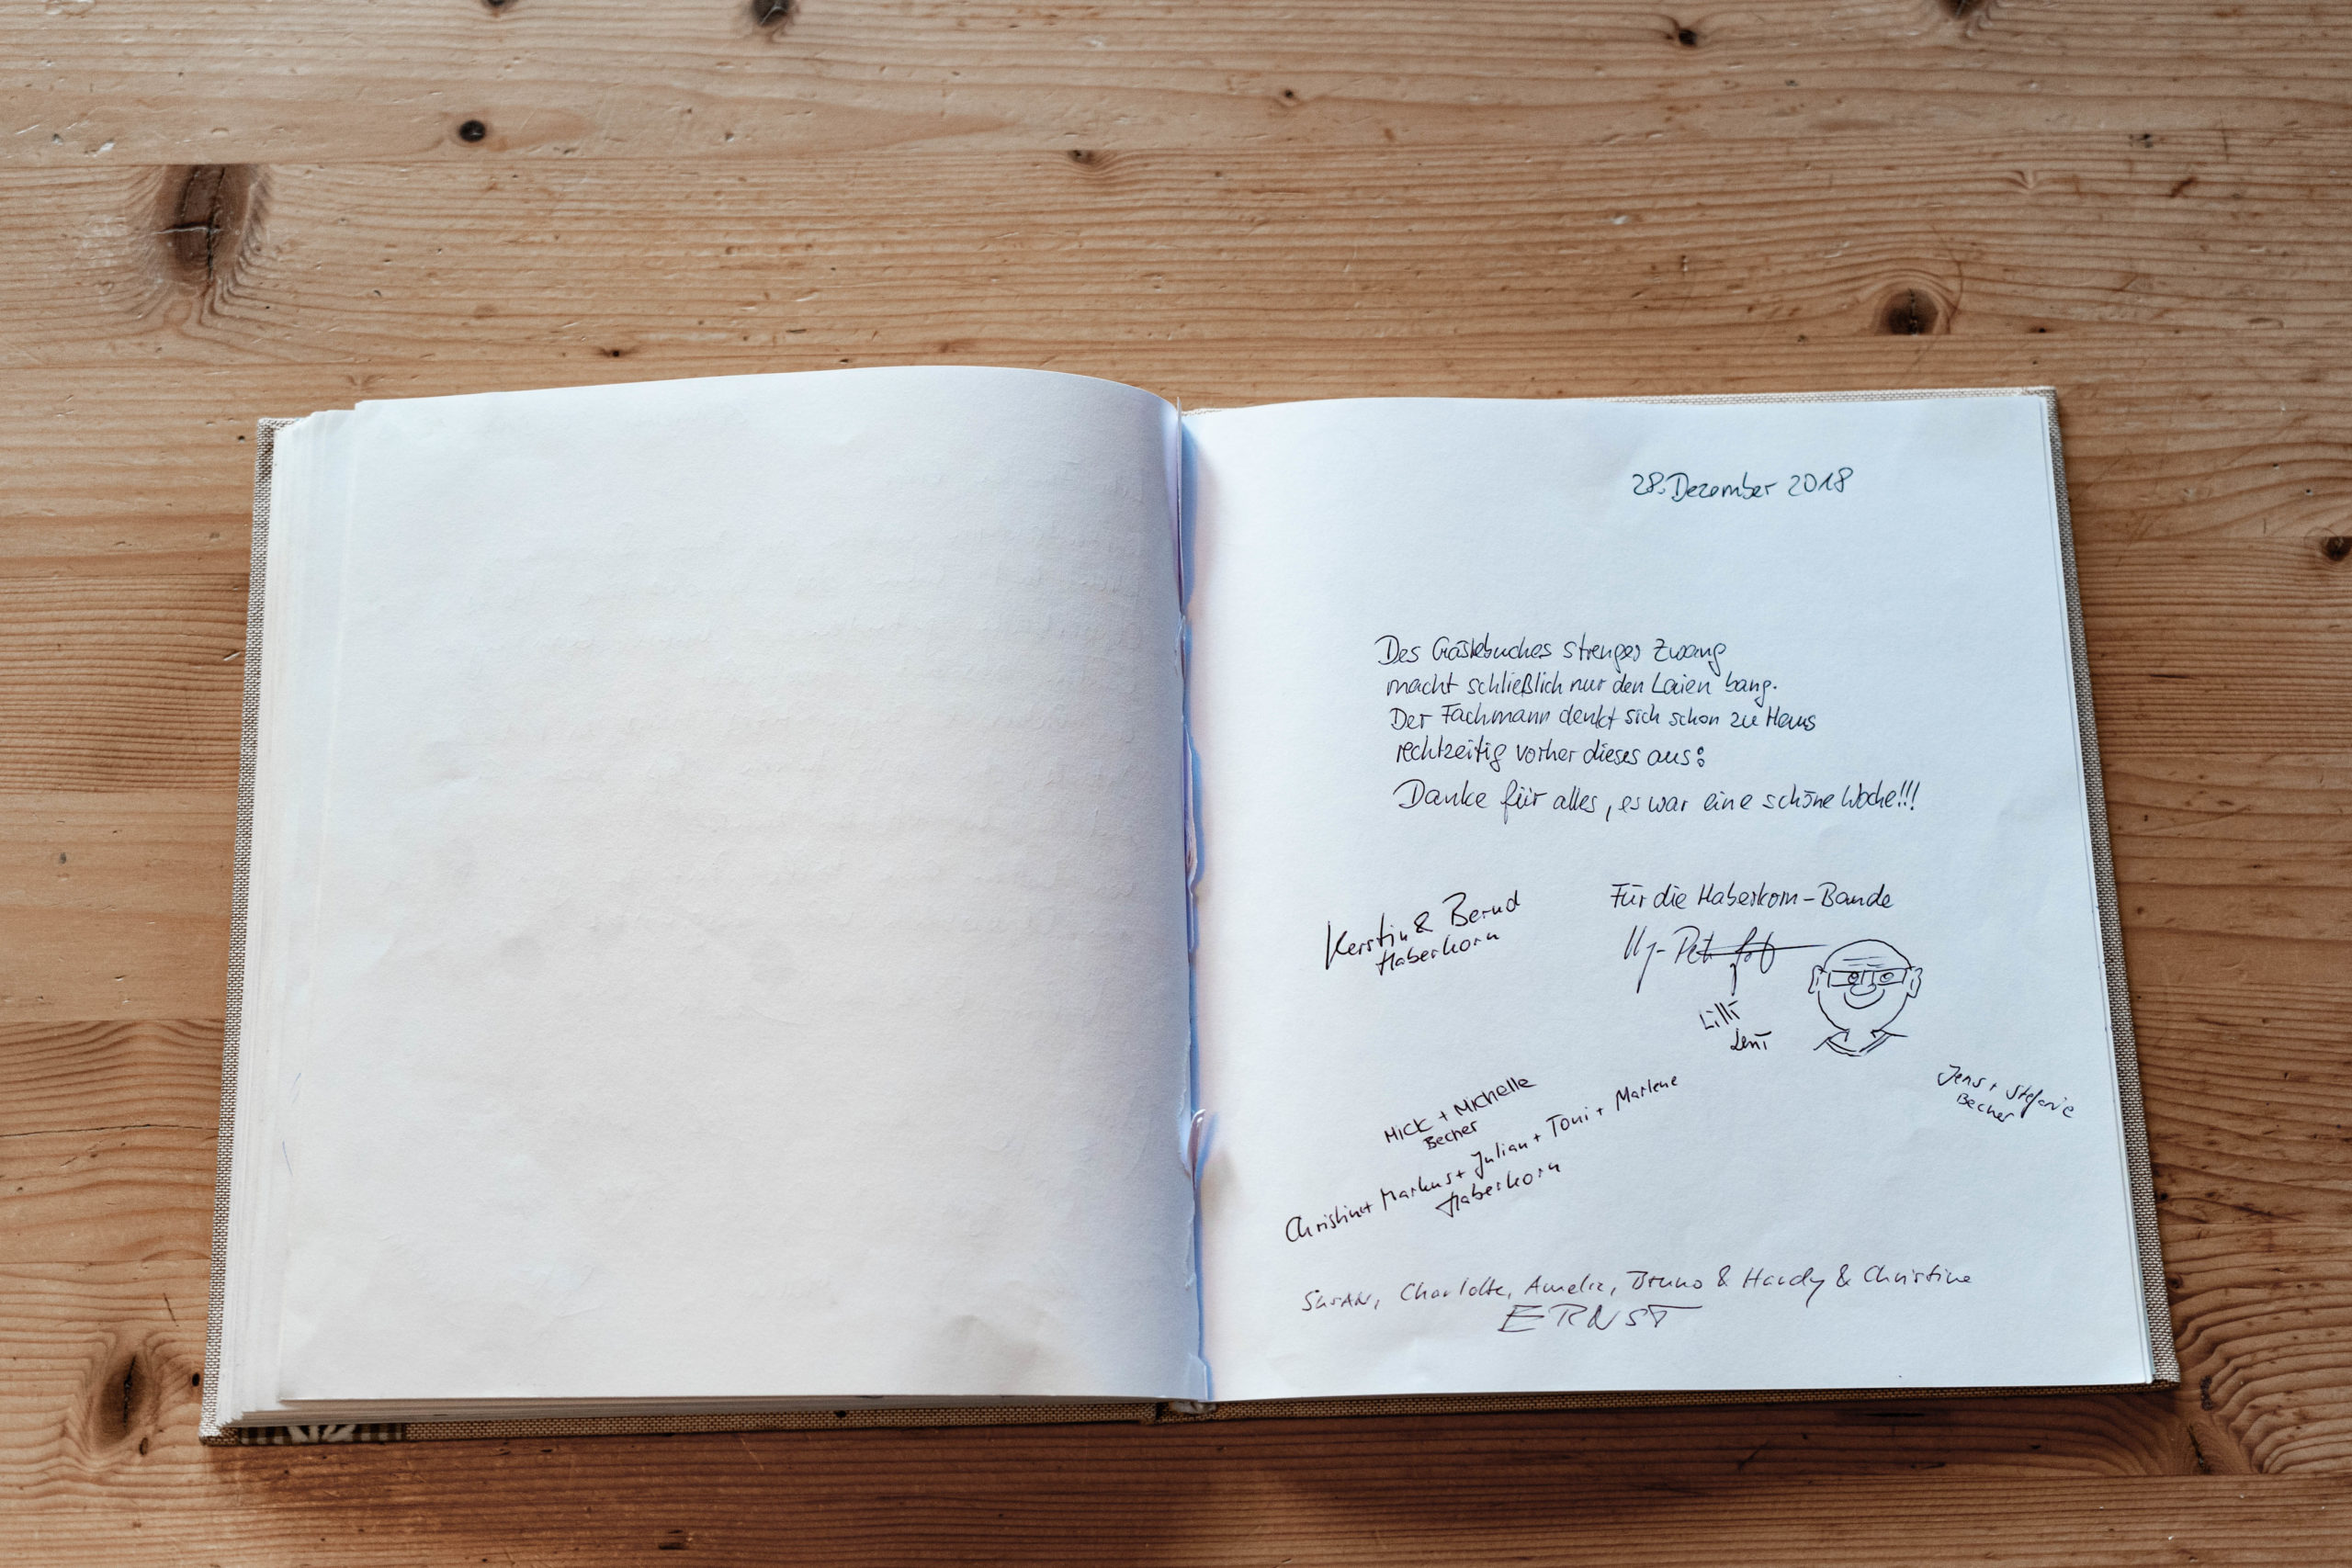 28. Dezember 2018
Des Gästebuches strenger Zwang
macht schließlich nur den Laien bang.
Der Fachmann denkt sich schon zu Haus
rechtzeitig vorher dieses aus:
Danke für alles, es war eine schöne Woche!!!
Kerstin & Bernd
Haberkorn
Für die Haberkorn-Bande
Lilli
Leni
Jens + Stefanie
Becher
Mick + Michelle
Becher
Christina + Markus + Julian + Toni + Marlene
Haberkorn
Susan, Charlotte, Amelie, Bruno & Hardy & Christine
ERNST